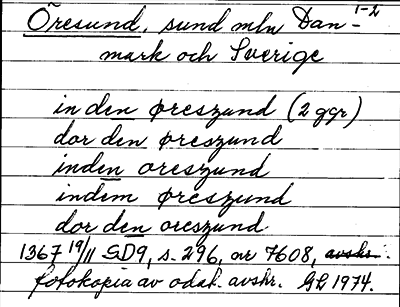 Öresund, sund mln Dan- 1-2
mark och Sverige
in den øreszund (2 ggr)
dor den øreszund
inden oreszund
indem øreszund
dor den oreszund
1367 19/11 SD9, s. 296, nr 7608, avskr.
fotokopia av odat. avskr. GL 1974.